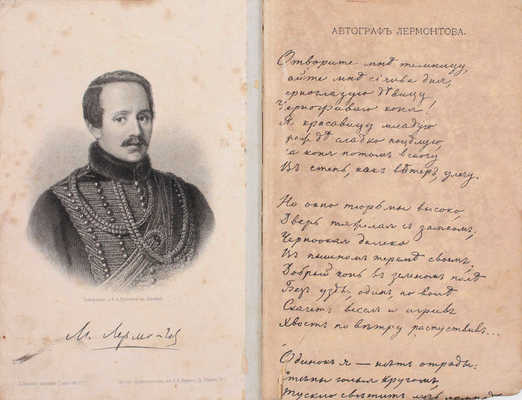 М. Лермонтов
АВТОГРАФЪ ЛЕРМОНТОВА.
Отворите мнѣ темницу,
айте мнѣ сіянье дня,
ерноглазую дѣвицу
Черногриваго коня!
Я красавицу младую
ѣ сладко поцѣлую,
а коня потомъ вскочу
Въ степь, какъ вѣтеръ, улечу.
Но окно тюрьмы высоко,
Дверь тяжелая съ замкомъ,
Черноокая далеко
Въ пышномъ теремѣ своемъ,
Добрый конь въ зеленомъ полѣ
Безъ узды, одинъ, по волѣ
Скачетъ веселъ и игривъ
Хвостъ по вѣтру распустивъ...
Одинокъ я — нѣтъ отрады:
тѣны голыя кругомъ,
тускло свѣтитъ лучъ лампады